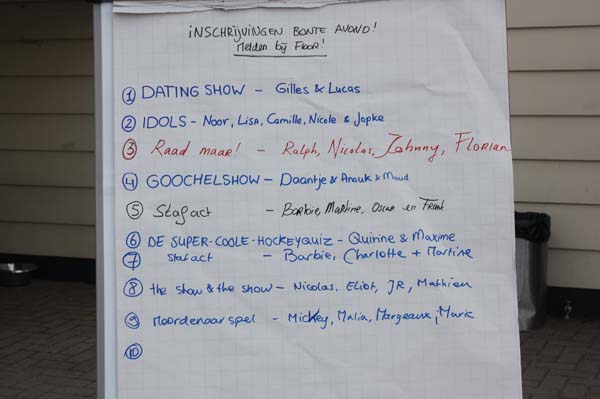 INSCHRIJVINGEN BONTE AVOND!
Melden bij Floor!
1 DATING SHOW - Gilles & Lucas
2 IDOLS - Noor, Lisa, Camille, Nicole & Jopke
3 Raad maar! - Ralph, Nicolas, Johnny, Florian
4 GOOCHELSHOW - Daantje & Anouk & Maud
5 Stafact - Barbie, Martine, Oscar en Frank
6 DE SUPER-COOLE-HOCKEYQUIZ - Quirine & Maxime
7 Stafact - Barbie, Charlotte + Martine
8 the show & the show - Nicolas, Eliot, JR, Mathieu
9 Moordenaarspel - Mickey, Malia, Margeaux, Mark
10